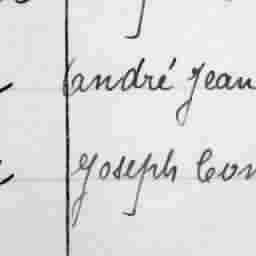 andré Jean
Joseph